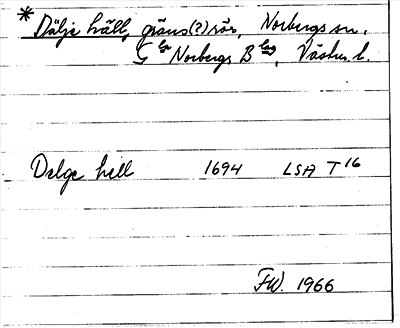 * Dälje häll, gräns(?)rör, Norbergs sn,
G la Norbergs B lag, Västm. l.
Delge hell 1694 LSA T 16
FW. 1966